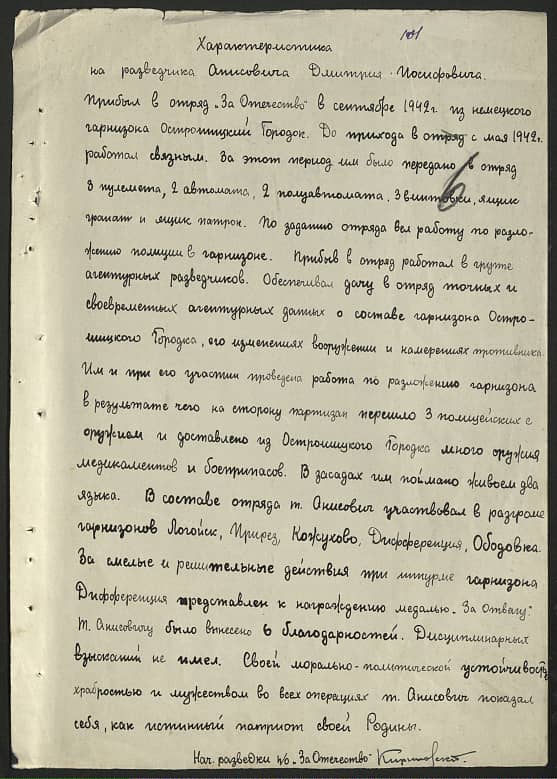 101
Характеристика
на разведчика Анисовича Дмитрия Иосифовича.
Прибыл в отряд „За Отечество" в сентябре 1942г. из немецкого
гарнизона Острошицкий Городок. До прихода в отряд с мая 1942г.
работал связным. За этот период им было передано в отряд
6
3 пулемета, 2 автомата, 2 полуавтомата, 3 винтовки, ящик
гранат и ящик патрон. По заданию отряда вел работу по разло-
жению полиции в гарнизоне. Прибыв в отряд работал в группе
агентурных разведчиков. Обеспечивал дачу в отряд точных и
своевременных агентурных данных о составе гарнизона Остро-
шицкого Городка, его изменениях вооружении и намерениях противника.
Им и при его участии проведена работа по разложению гарнизона
в результате чего на сторону партизан перешло 3 полицейских с
оружием и доставлено из Острошицкого Городка много оружия
медикаментов и боеприпасов. В засадах им поймано живьем два
языка. В составе отряда т. Анисович участвовал в разгроме
гарнизонов Логойск, Прирез, Кожухово, Дифференция, Ободовка.
За смелые и решительные действия при штурме гарнизона
Дифференция представлен к награждению медалью „За Отвагу"
Т. Анисовичу было вынесено 6 благодарностей. Дисциплинарных
взысканий не имел. Своей морально-политической устойчивостью
храбростью и мужеством во всех операциях т. Анисович показал
себя, как истинный патриот своей Родины.
Нач. разведки п/о „За Отечество"